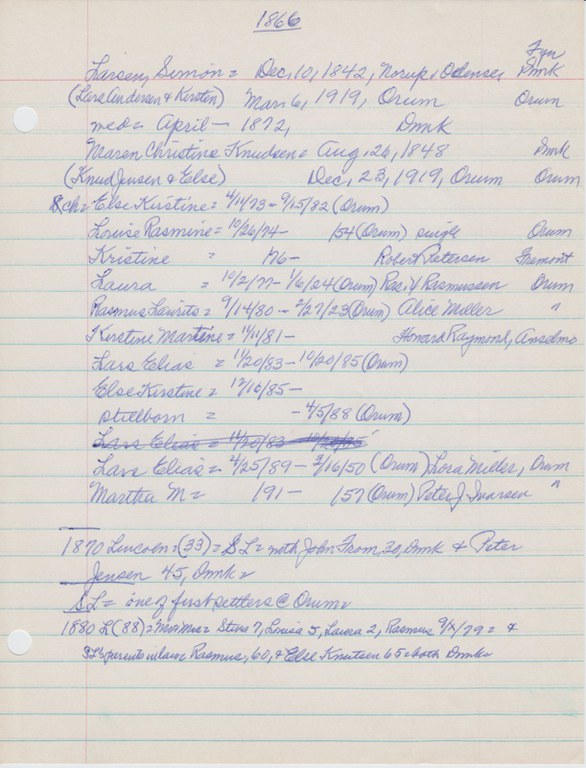 1866
Fyn
Larsen, Simon = Dec, 10, 1842, Norup, Odense, Dmk
(Lars Andersen & Kirsten) Mar 6, 1919, Orum Orum
med = April - 1872, Dmk
Maren Christine Knudsen = Aug, 26, 1848 Dmk
(Knud Jensen & Else) Dec, 23, 1919, Orum Orum
8 ch = Else Kirstine = 4/14/73 - 9/15/82 (Orum)
Louise Rasmine = 10/26/74 - /54 (Orum) single Orum
Kristine = /76 - Robert Petersen Fremont
Laura = 10/2/77 - 1/6/24 (Orum) Ras. Rasmussen Orum
Rasmus Laurits = 9/14/80 - 2/27/23 (Orum) Alice Miller "
Kirstine Martine = /81 - Howard Raymond, Anselmo
Lars Elias = 11/20/83 - 10/20/85 (Orum)
Else Kirstine = 12/16/85 -
stillborn = - 4/5/88 (Orum)
Lars Elias = 11/20/83
Lars Elias = 4/25/89 - 2/16/50 (Orum) Lora Miller, Orum
Martha M = /91 - /57 (Orum) Peter J Iversen "
1870 Lincoln = (33) = SL = with John From, 30, Dmk & Peter
Jensen 45, Dmk =
SL = one of first settlers @ Orum =
1880 L (88) = Mr & Mrs = Stina 7, Louisa 5, Laura 2, Rasmus 9/X/79 = &
SL's parents in law Rasmus, 60, & Else Knutsen 65 = both Dmk =